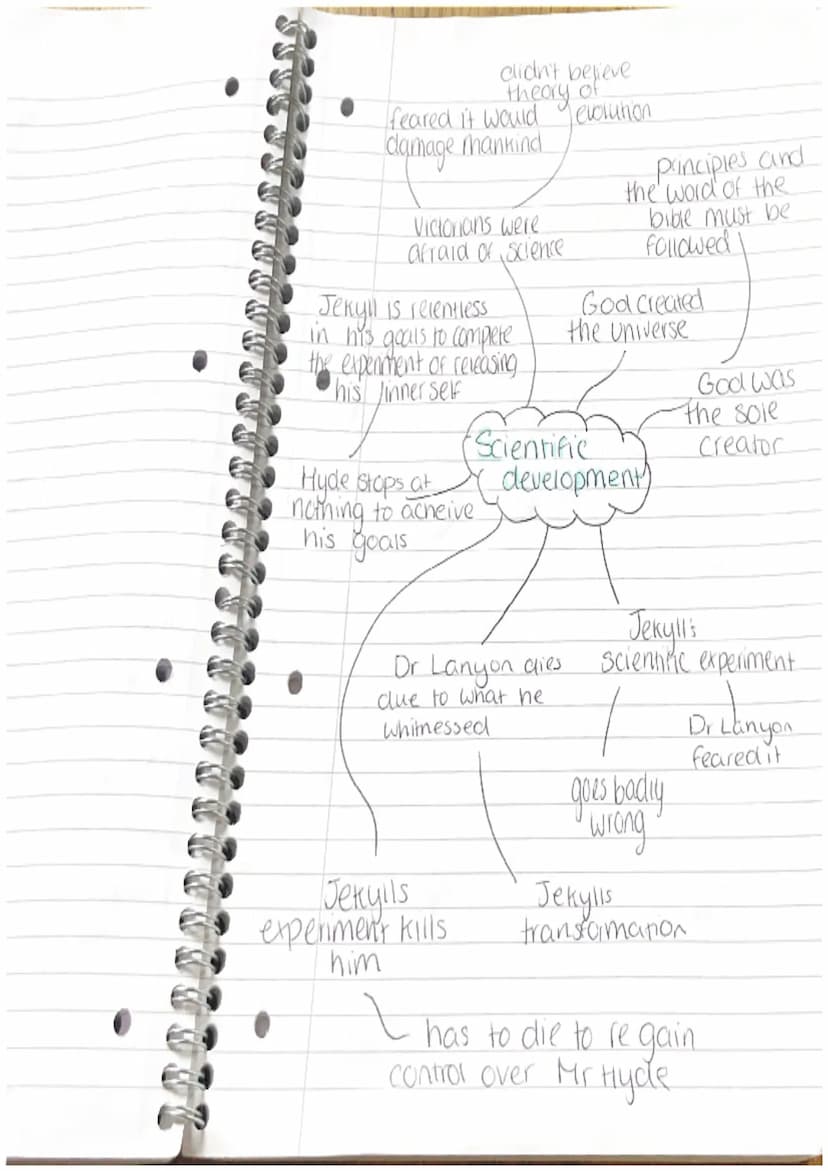 didn't believe
theory of
evolution
feared it would
damage mankind
Victorians were
afraid of science
principles and
the word of the
bible must be
followed
God created
the universe
God was
the sole
creator
Jekyll is relentless
in his goals to complete
the experiment of releasing
his inner self
Scientific
development
Hyde stops at
nothing to acheive
his goals
Jekyll's
scientific experiment
Dr Lanyon dies
due to what he
whitnessed
Dr Lanyon
feared it
goes badly
wrong
Jekylls
experiment kills
him
Jekylls
transformation
has to die to re gain
control over Mr Hyde